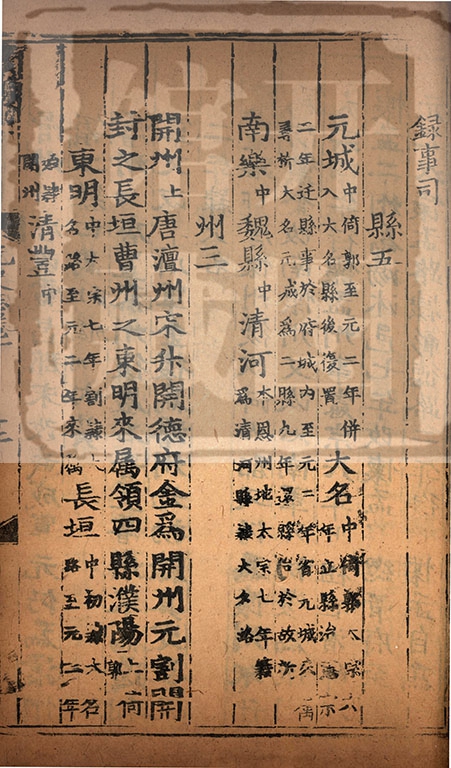 録事司
縣五
元城中倚郭至元二年併入大名縣後復置大名中倚郭太宗六年立縣治
二年迁縣事於府城内至元二年省元城來
尋析大名元城為二縣九年還縣治於故所
南樂中魏縣中清河本恩州地太宗七年籍為清河縣隸大名路
州三
開州上唐澶州宋升開德府金為開州元割開
封之長垣曹州之東明來属領四縣濮陽上倚郭
東明中太宗七年割隸大名路至元二年來長垣中初隸大名路至元二年
始隸開州清豐中